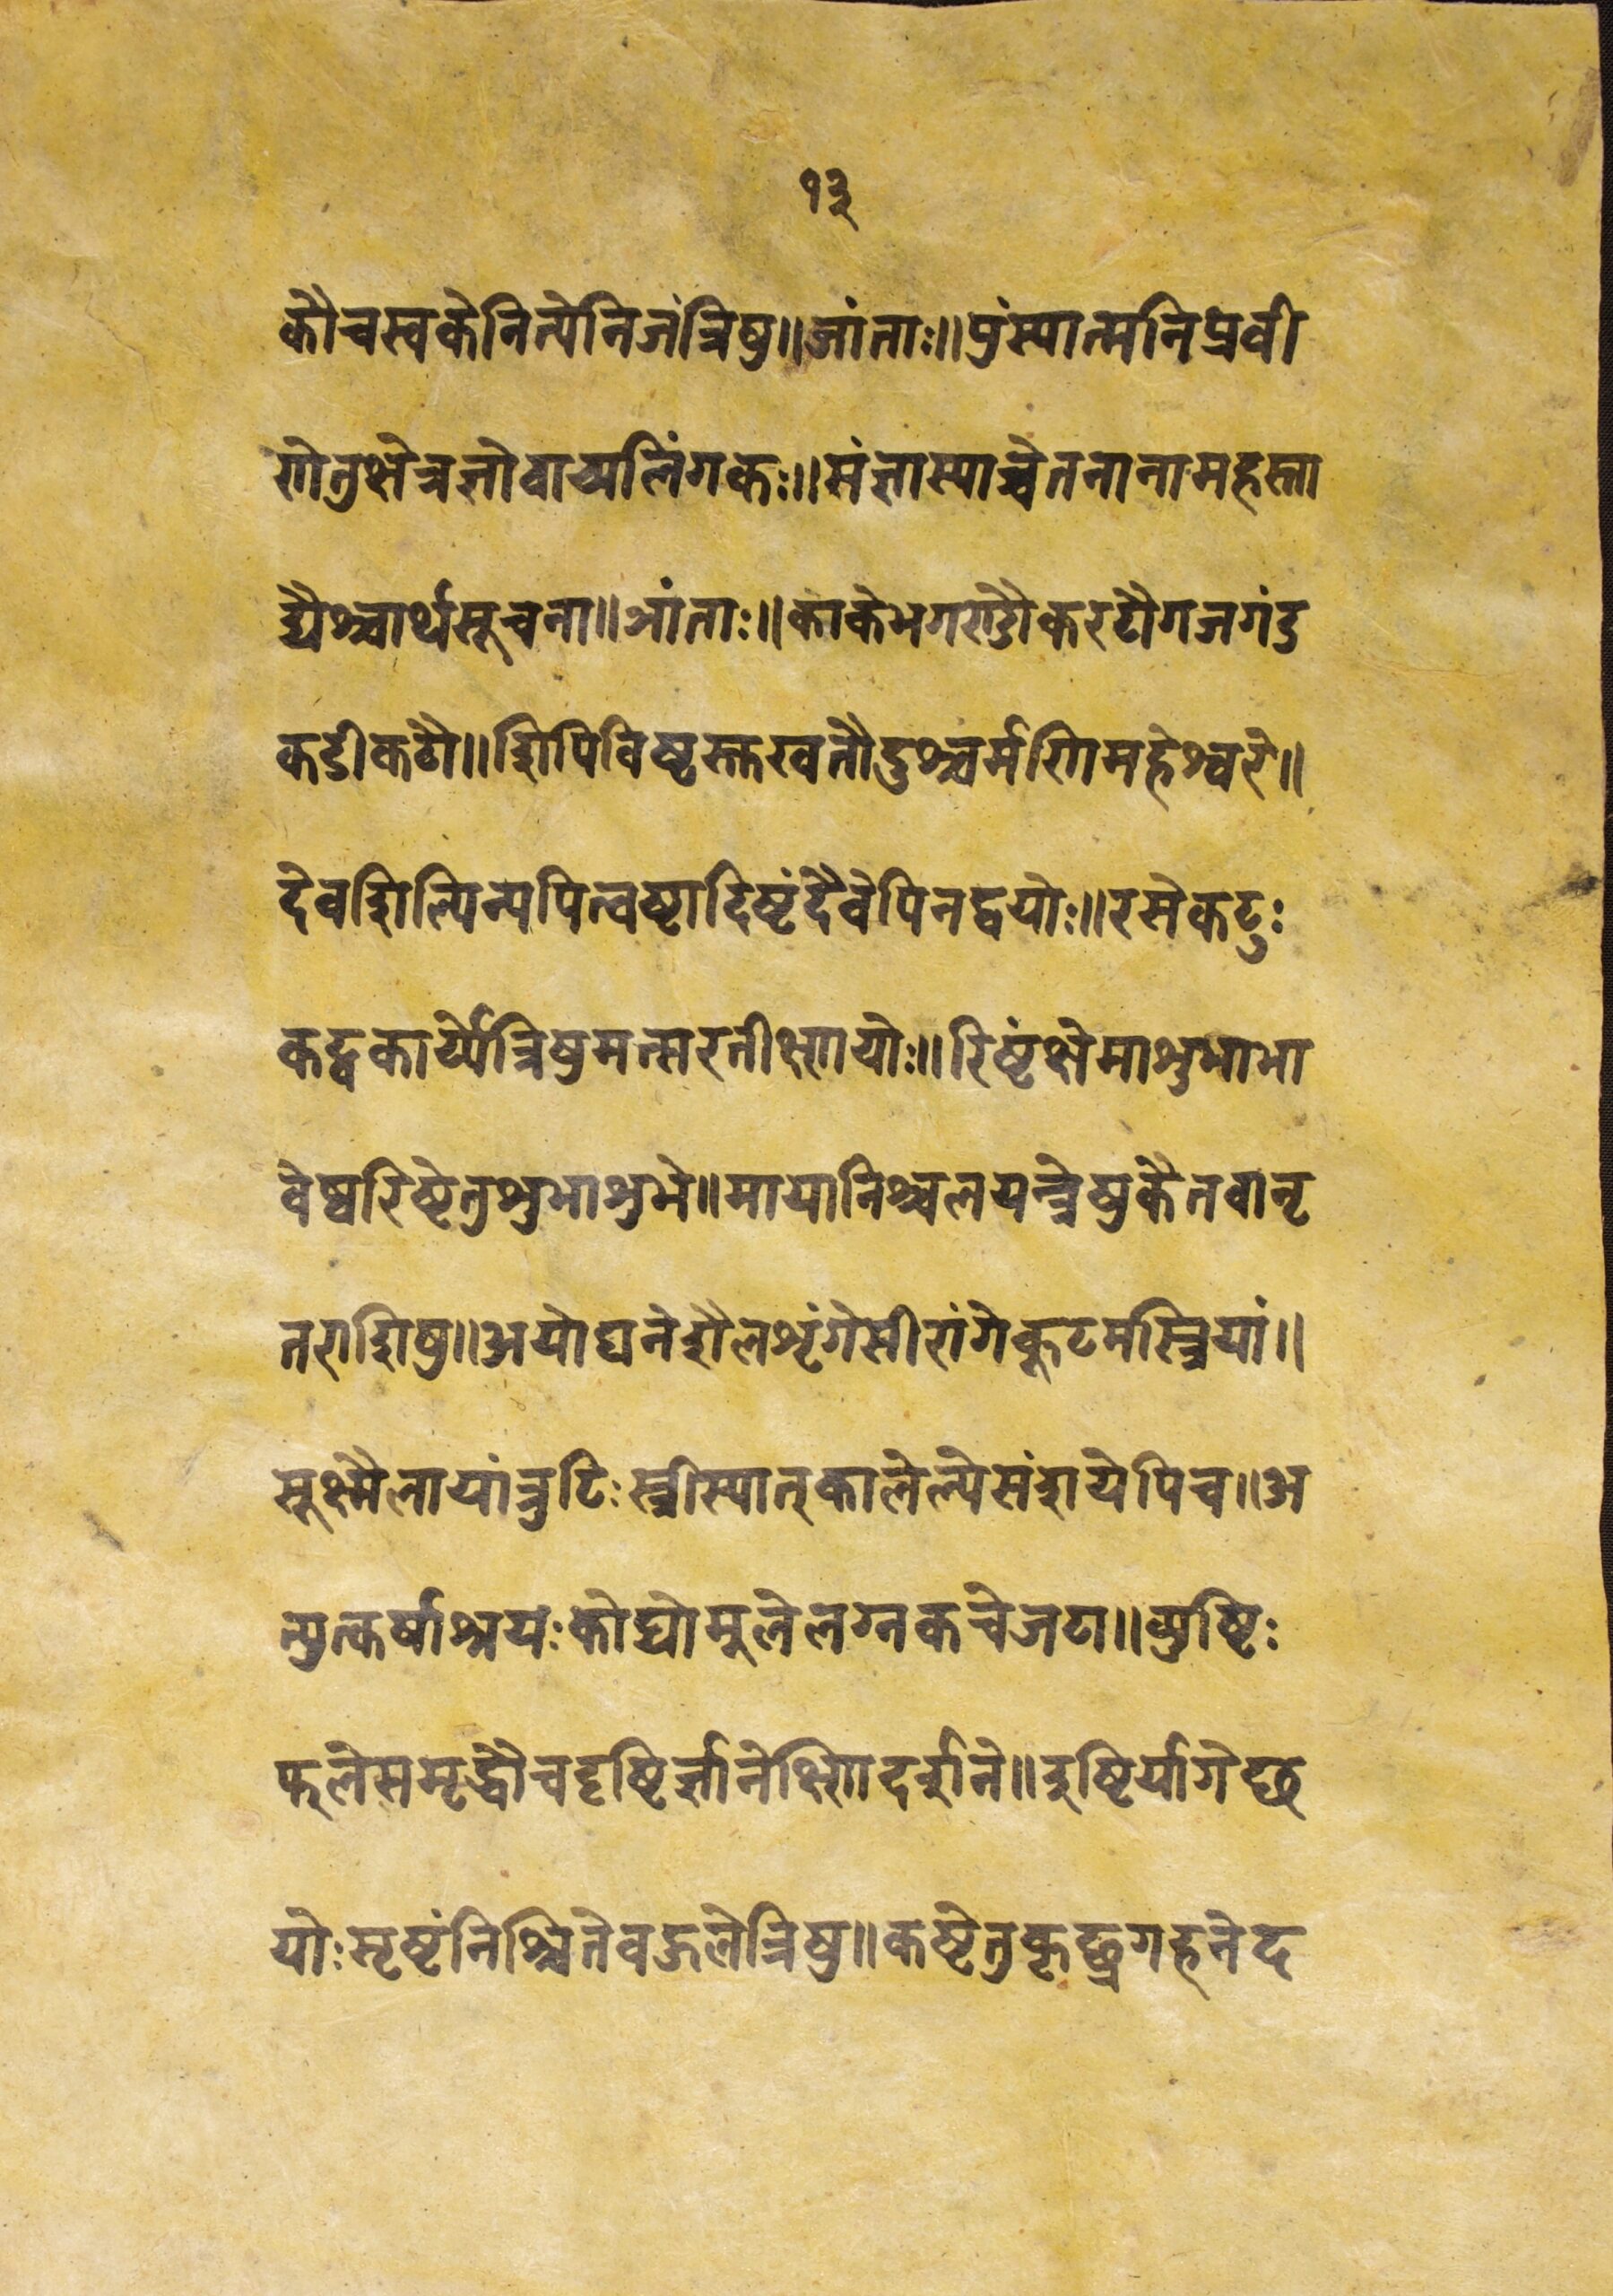 १३
कौचस्वकेनित्येनिजंत्रिषु॥जांताः॥पुंस्यात्मनिप्रवी
णोतुक्षेत्रज्ञोवाच्यलिंगकः॥संज्ञास्याच्चेतनानामहस्ता
द्यैश्चार्थसूचना॥ञांताः॥काकेभगण्डौकरटौगजगंड
कडीकटौ॥शिपिविष्टस्तखवतौदुश्चर्मणिमहेश्वरे॥
देवशिल्पिन्यपित्वष्टादिष्टंदैवेपिनद्वयोः॥रसेकटुः
कट्वकार्य्येत्रिषुमत्सरतीक्ष्णयोः॥रिष्टंक्षेमाशुभाभा
वेष्वरिष्टेतुशुभाशुभे॥मायानिश्चलयन्त्रेषुकैतवानृ
तराशिषु॥अयोघनेशैलशृंगेसीरांगेकूटमस्त्रियां॥
सूक्ष्मैलायांत्रुटिःस्त्रीस्यात्कालेल्पेसंशयेपिच॥अ
त्युत्कर्षाश्रयःकोट्योमूलेलग्नकचेजटा॥व्युष्टिः
फलेसमृद्धौचदृष्टिर्ज्ञानेक्ष्णिदर्शने॥इष्टिर्यागेच्छ
योःसृष्टंनिश्चितेवहुलेत्रिषु॥कष्टेतुकृच्छ्रगहनेद